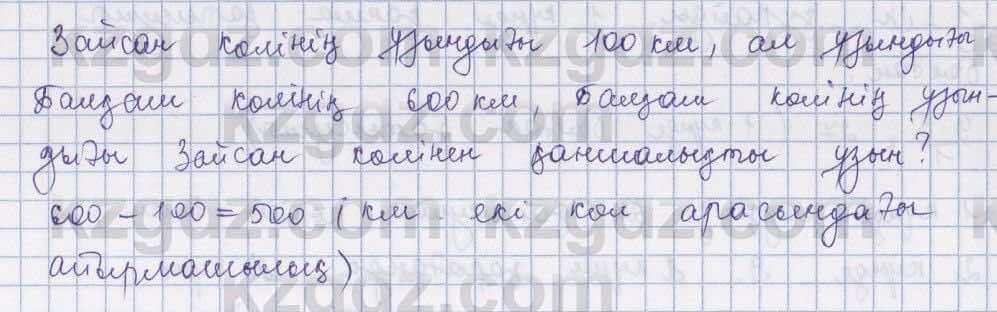 Зайсан көлінің ұзындығы 100 км, ал ұзындығы
Балқаш көлінің 600 км, Балқаш көлінің ұзын-
дығы Зайсан көлінен қаншалықты ұзын?
600 - 100 = 500 (км екі көл арасындағы
айырмашылық)